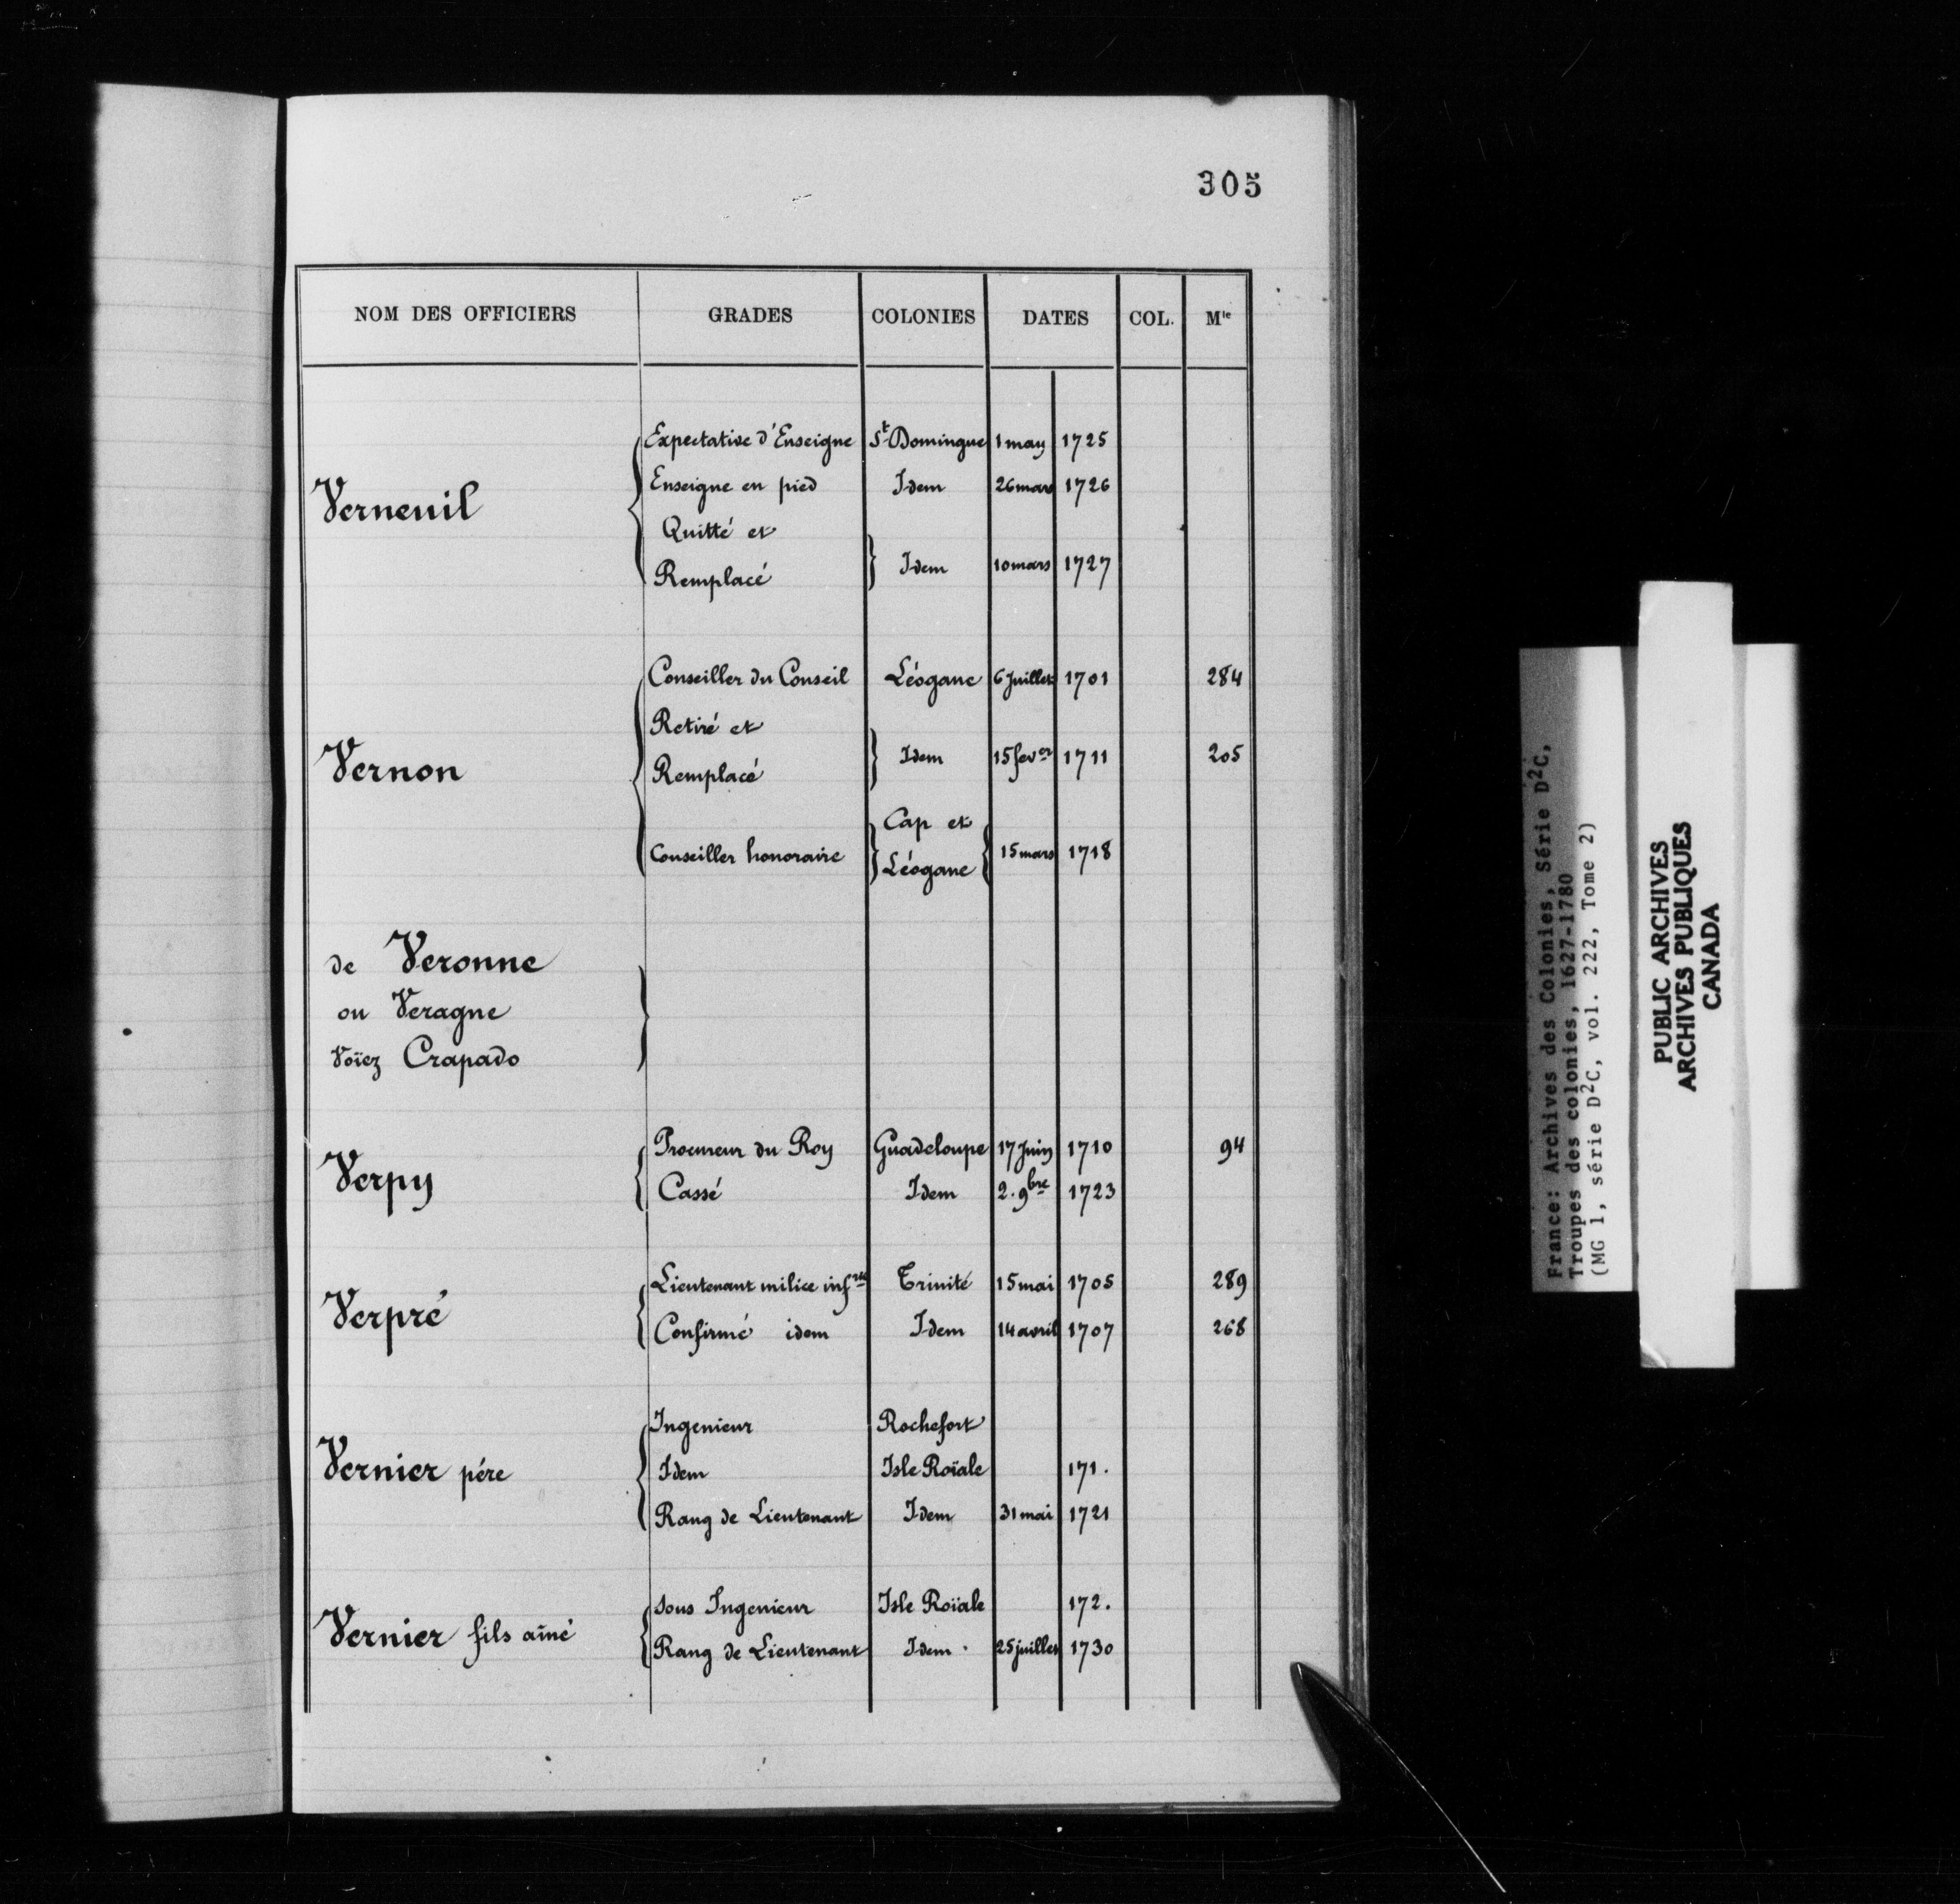 305
NOM DES OFFICIERS GRADES COLONIES DATES COL. Mle
Verneuil
Expectative d'Enseigne St Domingue 1 may 1725
Enseigne en pied Idem 26 mars 1726
Quitté et
Remplacé Idem 10 mars 1727
Vernon
Conseiller du Conseil Léogane 6 Juillet 1701 284
Retiré et
Remplacé Idem 15 fever 1711 205
Cap et
Conseiller honoraire Léogane 15 mars 1718
de Veronne
ou Veragne
Voïez Crapado
Verpy
Procureur du Roy Guadeloupe 17 Juin 1710 94
Cassé Idem 2. 9bre 1723
Verpré
Lieutenant milice infrie Trinité 15 mai 1705 289
Confirmé idem Idem 14 avril 1707 268
Vernier pére
Ingenieur Rochefort
Idem Isle Roïale 171.
Rang de Lieutenant Idem 31 mai 1721
Vernier fils aîné
Sous Ingenieur Isle Roïale 172.
Rang de Lieutenant Idem 25 juillet 1730
France: Archives des Colonies, Série D2C,
Troupes des colonies, 1627-1780
(MG 1, série D2C, vol. 222, Tome 2)
PUBLIC ARCHIVES
ARCHIVES PUBLIQUES
CANADA